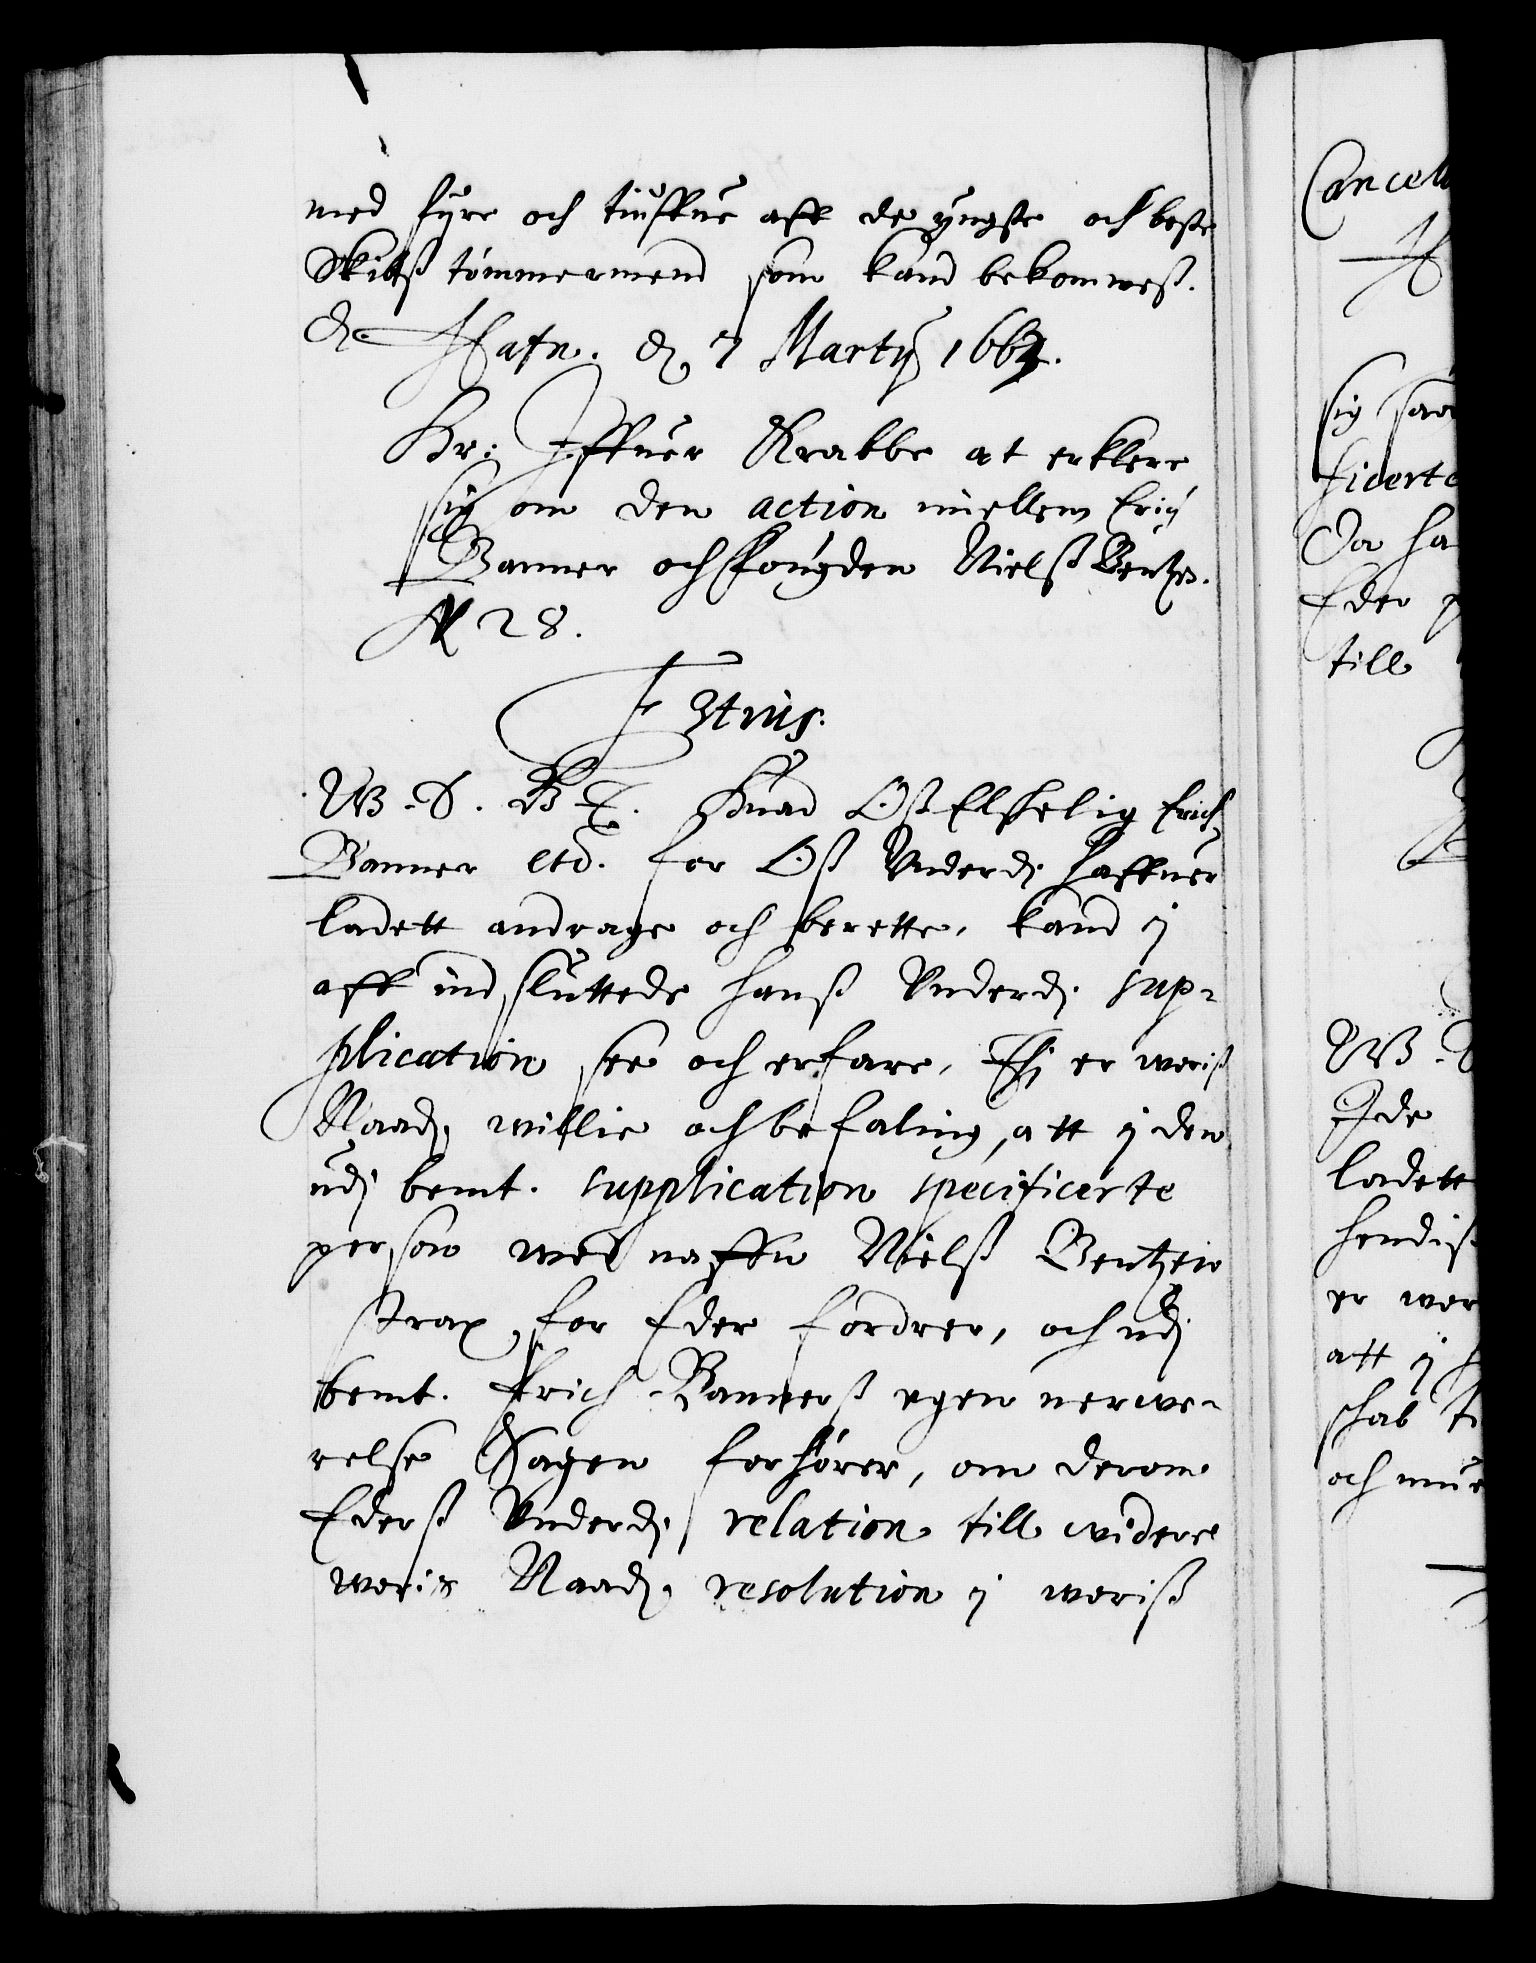 med fyre och tiuffue aff de yngste och beste
Skibß tömmermend som kand bekommeß.
Hafn. d. 7 Martij 1663.
Hr: Iffuer Krabbe at erklere
sig om den action imellem Erich
Banner och fougden Nielß Bentz.
N 28.
F 3tius.
W. S. G. T. Huad Oß Elskelig Erich
Banner etc. for Oß Underd. haffuer
ladett andrage och berette, kand i
aff indsluttede hanß Underd. sup-
plication see och erfare, Thi er woriß
Naad. willie och befaling, att i den
udj bemt. supplication specificerte
person wed naffn Nielß Bentzen
strax for Eder fordrer, och udj
bemt. Erich Bannerß egen nerwe-
relse Sagen forhörer, om derom
Ederß Underd. relation till widere
woriß Naad. resolution i woriß
Cancell
sig saa
ficerte
Da ha
Eder p
till
W. S
Ide
ladett
hendiß
er wor
att i h
skab ti
och mue